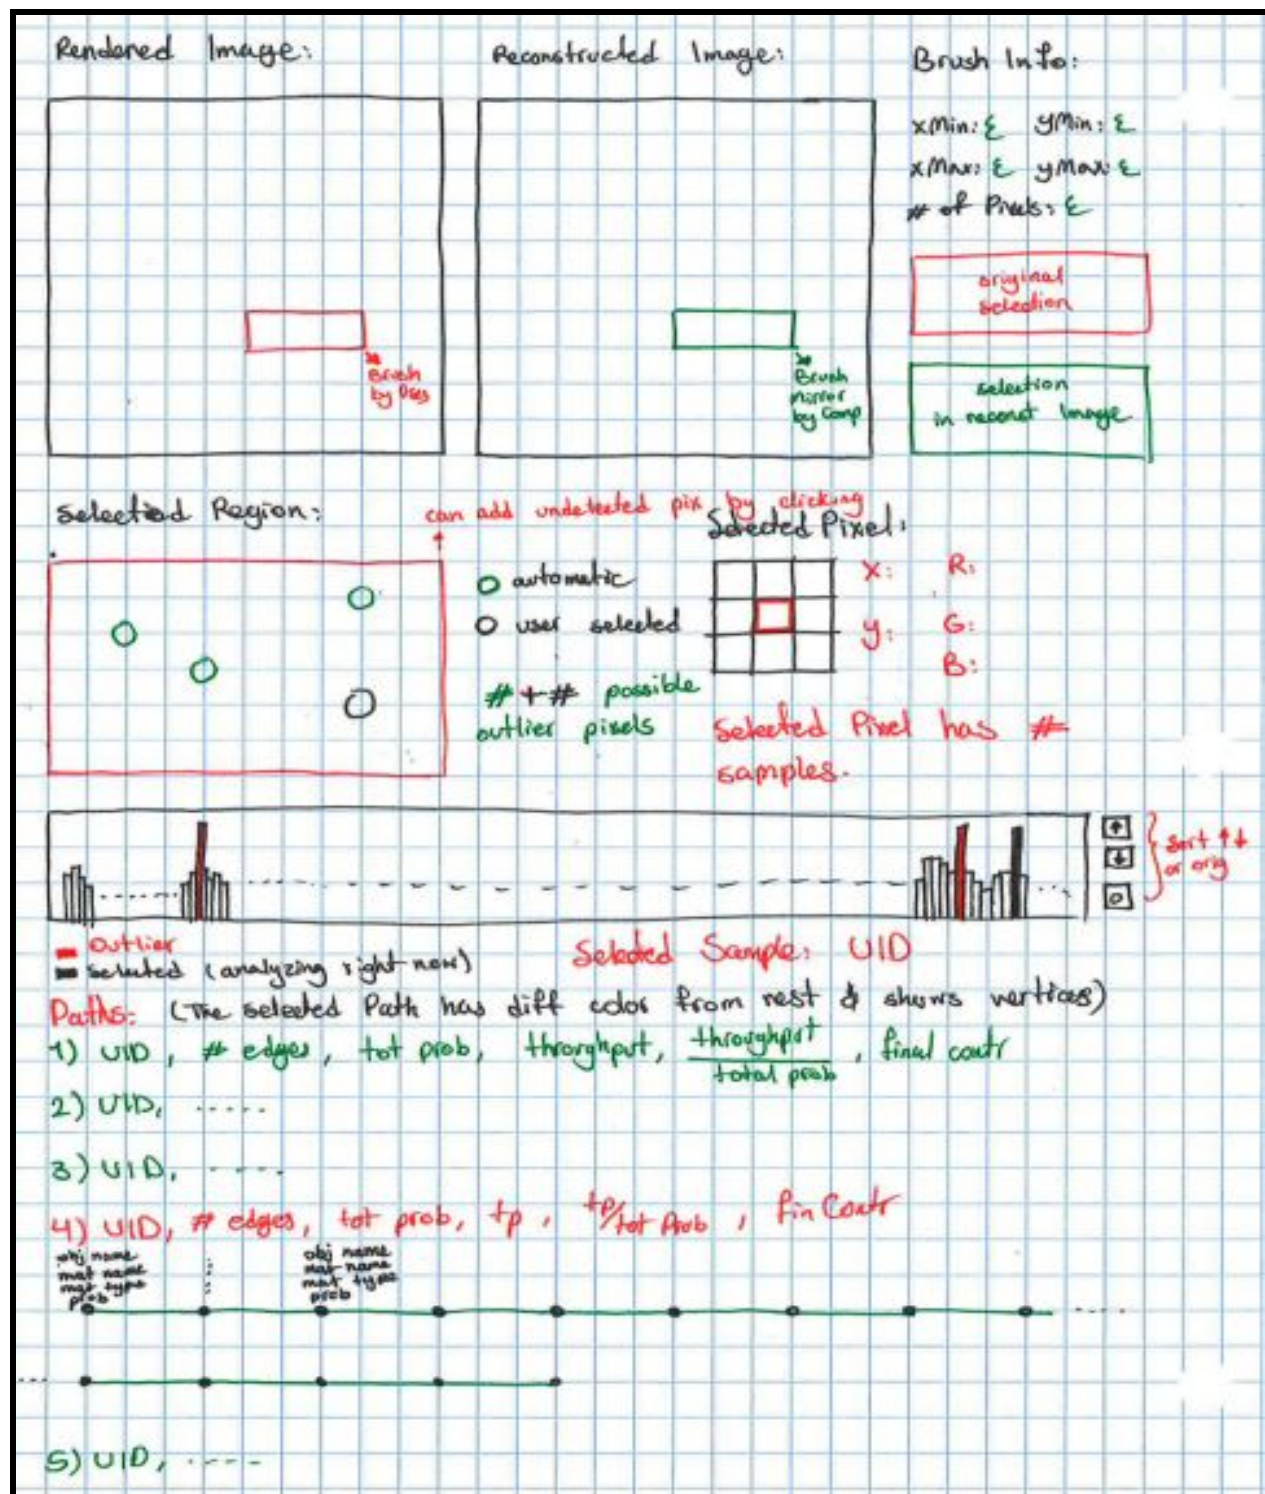 Rendered Image:
Reconstructed Image:
Brush Info:
xMin: ξ yMin: ξ
xMax: ξ yMax: ξ
# of Pixels: ξ
original
selection
Brush
by User
Brush
mirror
by Comp
selection
in reconst Image
Selected Region:
can add undetected pix by clicking
Selected Pixel:
automatic
user selected
X: R:
y: G:
B:
#+# possible
outlier pixels
Selected Pixel has #
samples.
Sort ↑↓
or orig
Outlier
Selected (analyzing right now)
Selected Sample: UID
Paths: (The selected Path has diff color from rest & shows vertices)
1) UID, # edges, tot prob, throughput, throughput / total prob, final contr
2) UID, .....
3) UID, .....
4) UID, # edges, tot prob, tp, tp/tot Prob, fin Contr
obj name
mat name
mat type
prob
obj name
mat name
mat type
prob
5) UID, .....